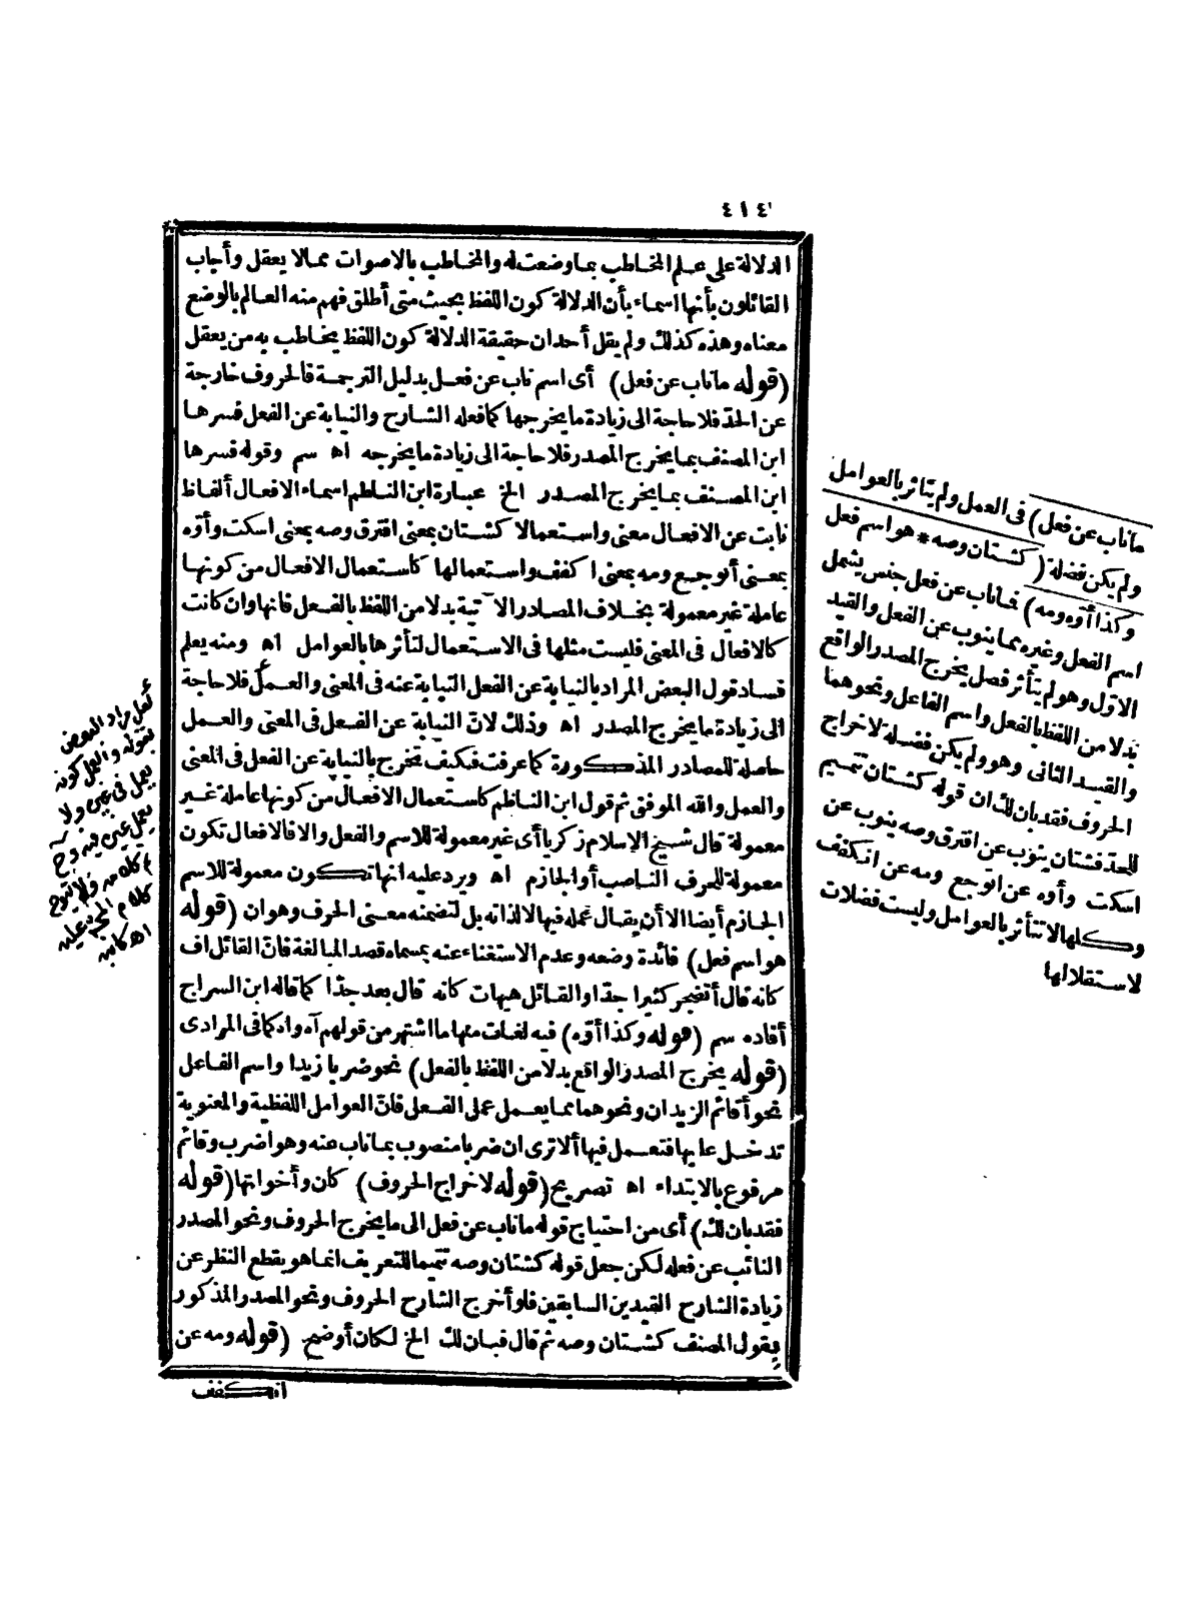 ٤١٤
الدلالة على علم المخاطب بما وضعت له والمخاطب بالاصوات ممالا يعقل وأجاب
القائلون بأنها اسماء بأن الدلالة كون اللفظ بحيث متى أطلق فهم منه العالم بالوضع
معناه وهذه كذلك ولم يقل أحدان حقيقة الدلالة كون اللفظ يخاطب به من يعقل
(قوله ماناب عن فعل) أى اسم ناب عن فعل بدليل الترجمة فالحروف خارجة
عن الحد فلا حاجة الى زيادة ما يخرجها كما فعله الشارح والنيابة عن الفعل فسرها
ابن المصنف بما يخرج المصدر فلا حاجة الى زيادة ما يخرجه اه سم وقوله فسرها
ابن المصنف بما يخرج المصدر الخ عبارة ابن الناظم اسماء الافعال ألفاظ
نابت عن الافعال معنى واستعمالا كشتان بمعنى افترق وصه بمعنى اسكت وأوّه
بمعنى أتوجع ومه بمعنى اكفف واستعمالها كاستعمال الافعال من كونها
عاملة غير معمولة بخلاف المصادر الآتية بدلا من اللفظ بالفعل فانها وان كانت
كالافعال فى المعنى فليست مثلها فى الاستعمال لتأثرها بالعوامل اه ومنه يعلم
فساد قول البعض المراد بالنيابة عن الفعل النيابة عنه فى المعنى والعمل فلا حاجة
الى زيادة ما يخرج المصدر اه وذلك لانّ النيابة عن الفعل فى المعنى والعمل
حاصلة للمصادر المذكورة كما عرفت فكيف تخرج بالنيابة عن الفعل فى المعنى
والعمل والله الموفق ثم قول ابن الناظم كاستعمال الافعال من كونها عاملة غير
معمولة قال شيخ الإسلام زكريا أى غير معمولة للاسم والفعل والا فالافعال تكون
معمولة للحرف الناصب أو الجازم اه ويرد عليه انها تكون معمولة للاسم
الجازم أيضا الا أن يقال عمله فيها لا لذاته بل لتضمنه معنى الحرف وهو ان (قوله
هو اسم فعل) فائدة وضعه وعدم الاستغناء عنه بمسماه قصد المبالغة فانّ القائل اف
كانه قال أتضجر كثيرا جدّا والقائل هيهات كانه قال بعد جدّا كما قاله ابن السراج
أفاده سم (قوله وكذا أوّه) فيه لغات منها ما اشتهر من قولهم آه واه كما فى المرادى
(قوله يخرج المصدر الواقع بدلا من اللفظ بالفعل) نحو ضربا زيدا واسم الفاعل
نحو أقائم الزيدان ونحوهما مما يعمل عمل الفعل فانّ العوامل اللفظية والمعنوية
تدخل عليها فتعمل فيها ألا ترى ان ضربا منصوب بماناب عنه وهو اضرب وقائم
مرفوع بالابتداء اه تصريح (قوله لاخراج الحروف) كان وأخواتها (قوله
فقد بان لك) أى من احتياج قوله ماناب عن فعل الى ما يخرج الحروف ونحو المصدر
النائب عن فعله لكن جعل قوله كشتان وصه تتميما للتعريف انما هو بقطع النظر عن
زيادة الشارح القيدين السابقين فلو أخرج الشارح الحروف ونحو المصدر المذكور
بقول المصنف كشتان وصه ثم قال فبان لك الخ لكان أوضح (قوله ومه عن
انكفف
ماناب عن فعل) فى العمل ولم يتأثر بالعوامل
ولم يكن فضلة (كشتان وصه * هو اسم فعل
وكذا أوه ومه) فماناب عن فعل جنس يشمل
اسم الفعل وغيره مما ينوب عن الفعل والقيد
الاوّل وهو لم يتأثر فصل يخرج المصدر الواقع
بدلا من اللفظ بالفعل واسم الفاعل ونحوهما
والقيد الثانى وهو ولم يكن فضلة لاخراج
الحروف فقد بان لك ان قوله كشتان تتميم
للحد فشتان ينوب عن افترق وصه ينوب عن
اسكت وأوه عن اتوجع ومه عن انكفف
وكلها لا تتأثر بالعوامل وليست فضلات
لاستقلالها
لعل مراد البعض
بقوله والعمل كونه
يعمل فى غيره ولا
يعمل غيره فيه